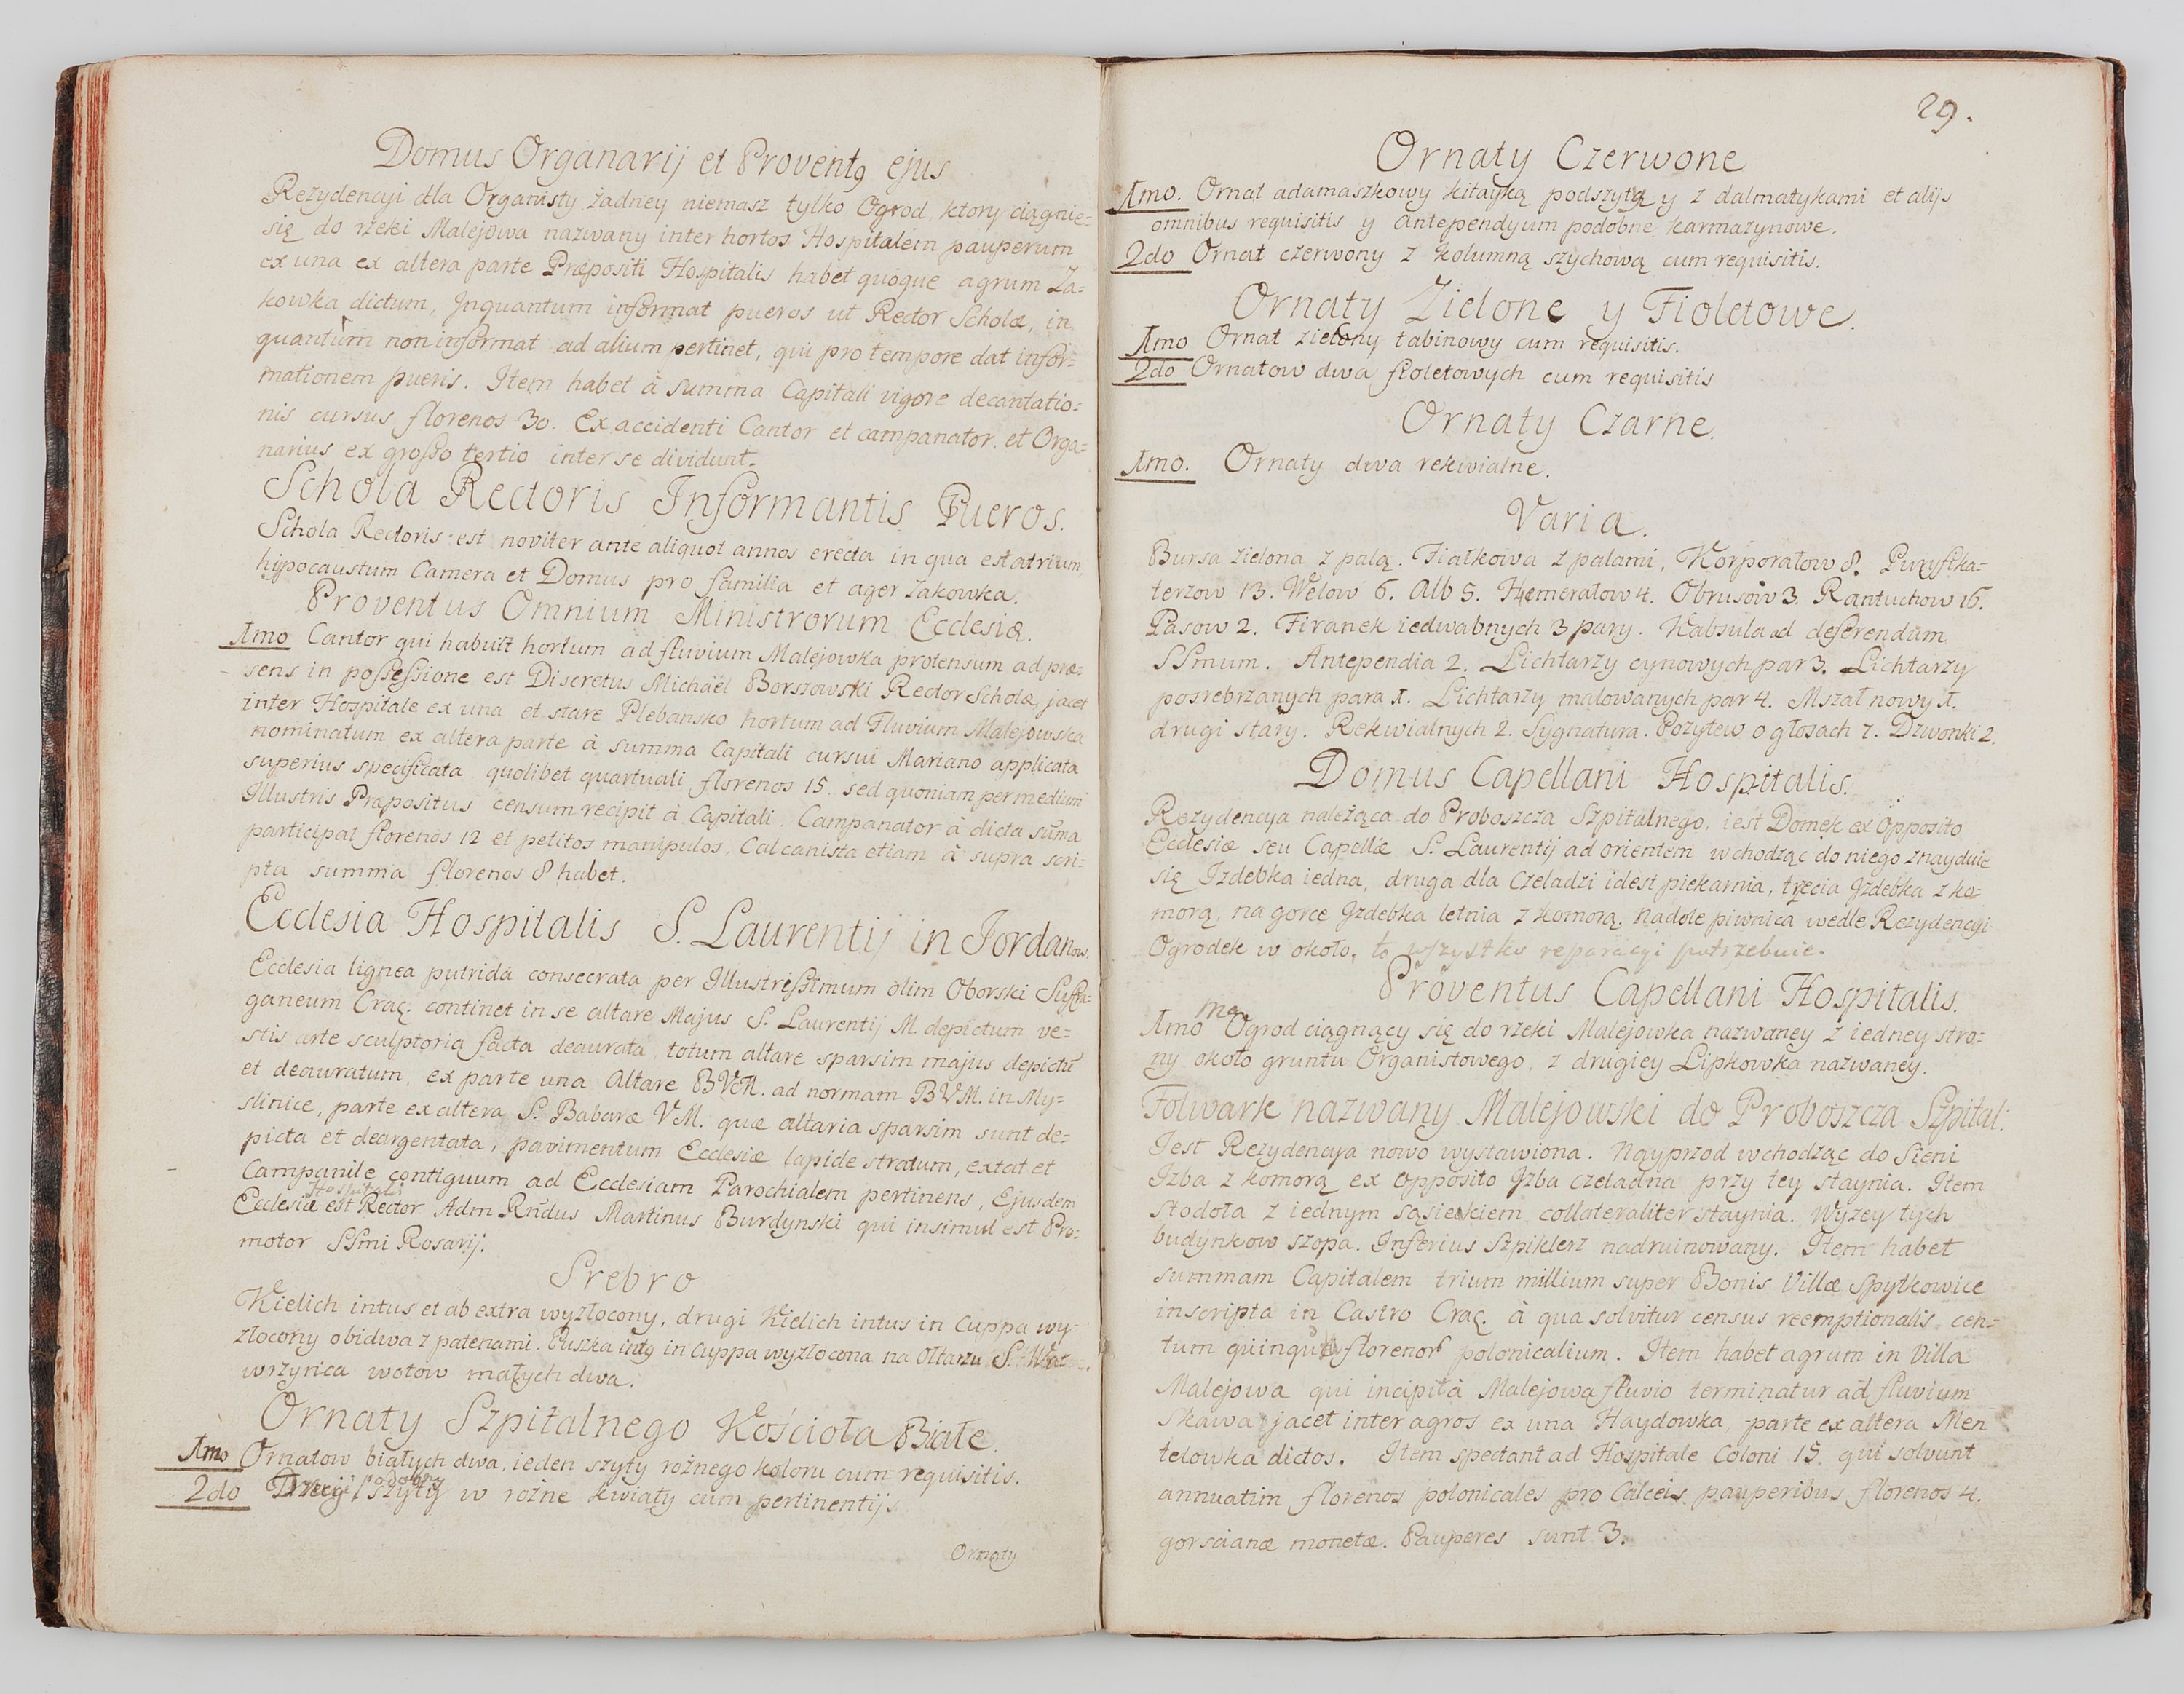 Domus Organarij et Provent9 ejus
Rezydencyi dla Organisty żadney niemasz tylko Ogrod, ktory ciągnie=
się do rzeki Malejowa nazwany inter hortos Hospitalem pauperum
ex una ex altera parte Præpositi Hospitalis habet quoque agrum Ża=
kowka dictum, Jnquantum informat pueros ut Rector Scholæ, in
quantum non informat ad alium pertinet, qui pro tempore dat infor=
mationem pueris. Item habet à summa Capitali vigore decantatio=
nis cursus florenos 30. Ex accidenti Cantor et campanator, et Orga=
narius ex grosso tertio inter se dividunt.
Schola Rectoris Informantis Pueros.
Schola Rectoris est noviter ante aliquot annos erecta in qua est atrium,
hypocaustum Camera et Domus pro familia et ager Zakowka.
Proventus Omnium Ministrorum Ecclesiæ.
1mo Cantor qui habuit hortum ad fluvium Malejowka protensum ad præ=
sens in possessione est Discretus Michaël Borszowski Rector Scholæ, jacet
inter Hospitale ex una et stare Plebansko hortum ad Fluvium Malejowska
nominatum ex altera parte à summa Capitali cursui Mariano applicata
superius specificata quolibet quartuali florenos 15. sed quoniam per medium
Illustris Præpositus censum recipit à Capitali. Campanator à dicta suma
participat florenos 12 et petitos manipulos. Calcanista etiam à supra scri=
pta summa florenos 8 habet.
Ecclesia Hospitalis S. Laurentij in Jordanow.
Ecclesia lignea putrida consecrata per Illustrissimum olim Oborski Suffra=
ganeum Crac. continet in se altare Majus S. Laurentij M. depictum ve=
stis arte sculptoria facta deaurata, totum altare sparsim majus depictu
et deauratum, ex parte una Altare BVM. ad normam BVM. in My=
slinice, parte ex altera S. Babaræ VM. quæ altaria sparsim sunt de=
picta et deargentata, pavimentum Ecclesiæ lapide stratum, extat et
Campanile contiguum ad Ecclesiam Parochialem pertinens, Ejusdem
Hospitalis
Ecclesiæ est Rector Adm Rndus Martinus Burdynski qui insimul est Pro=
motor SSmi Rosarij.
Srebro
Kielich intus et ab extra wyzłocony, drugi Kielich intus in Cuppa wy
złocony obidwa z patenami. Puszka int9 in cuppa wyzłocona na Ołtarzu S.
wrzyńca wotow małych dwa.
Ornaty Szpitalnego Kościoła Białe.
1mo Ornatow białych dwa, ieden szyty rożnego koloru cum requisitis.
podobny
2do Trzeci szyty w rożne kwiaty cum pertinentijs
Ornaty
29.
Ornaty Czerwone
1mo. Ornat adamaszkowy kitayką podszytą y z dalmatykami et alijs
omnibus requisitis y antependyum podobne karmazynowe.
2do Ornat czerwony z kolumną szychową cum requisitis.
Ornaty Zielone y Fioletowe.
1mo Ornat zielony tabinowy cum requisitis.
2do Ornatow dwa fioletowych cum requisitis
Ornaty Czarne.
1mo. Ornaty dwa rekwialne.
Varia.
Bursa zielona z palą. Fiałkowa z palami, Korporałow 8. Puryfika=
terzow 13. Welow 6. Alb 5. Humerałow 4. Obrusow 3. Rantuchow 16.
Pasow 2. Firanek iedwabnych 3 pary. Kabsula ad deferendum
SSmum. Antependia 2. Lichtarzy cynowych par 3. Lichtarzy
posrebrzanych para 1. Lichtarzy malowanych par 4. Mszał nowy 1.
drugi stary. Rekwialnych 2. Sygnatura. Pozytew o głosach 7. Dzwonki 2.
Domus Capellani Hospitalis.
Rezydencya należąca do Proboszcza Szpitalnego, iest Domek ex Opposito
Ecclesiæ seu Capellæ S. Laurentij ad orientem wchodząc do niego znayduie
się Jzdebka iedna, druga dla czeladzi idest piekarnia, trzecia Jzdebka z ko=
morą, na gorce Jzdebka letnia z komorą. nadole piwnica wedle Rezydencyi
Ogrodek w około. to wszystko reparacyi potrzebuie.
Proventus Capellani Hospitalis.
ma
1mo Ogrod ciągnący się do rzeki Malejowka nazwaney z iedney stro=
ny około gruntu Organistowego, z drugiey Lipkowka nazwaney.
Folwark nazwany Malejowski do Proboszcza Szpital:
Jest Rezydencya nowo wystawiona. Nayprzod wchodząc do Sieni
Izba z komorą ex opposito Jzba czeladna przy tey staynia. Item
Stodoła z iednym sąsiekiem collateraliter staynia. Wyzey tych
budynkow szopa. Inferius Szpiklerz nadruinowany. Item habet
summam Capitalem trium millium super Bonis Villæ Spytkowice
inscripta in Castro Crac. à qua solvitur census reemptionalis cen=
tum florenor polonicalium. Item habet agrum in Villa
Malejowa qui incipit à Malejowa fluvio terminatur ad fluvium
Skawa jacet inter agros ex una Haydowka, parte ex altera Men
telowka dictos. Item spectant ad Hospitale Coloni 15. qui solvunt
annuatim florenos polonicales pro Calceis pauperibus florenos 4.
gorscianæ monetæ. Pauperes sunt 3.